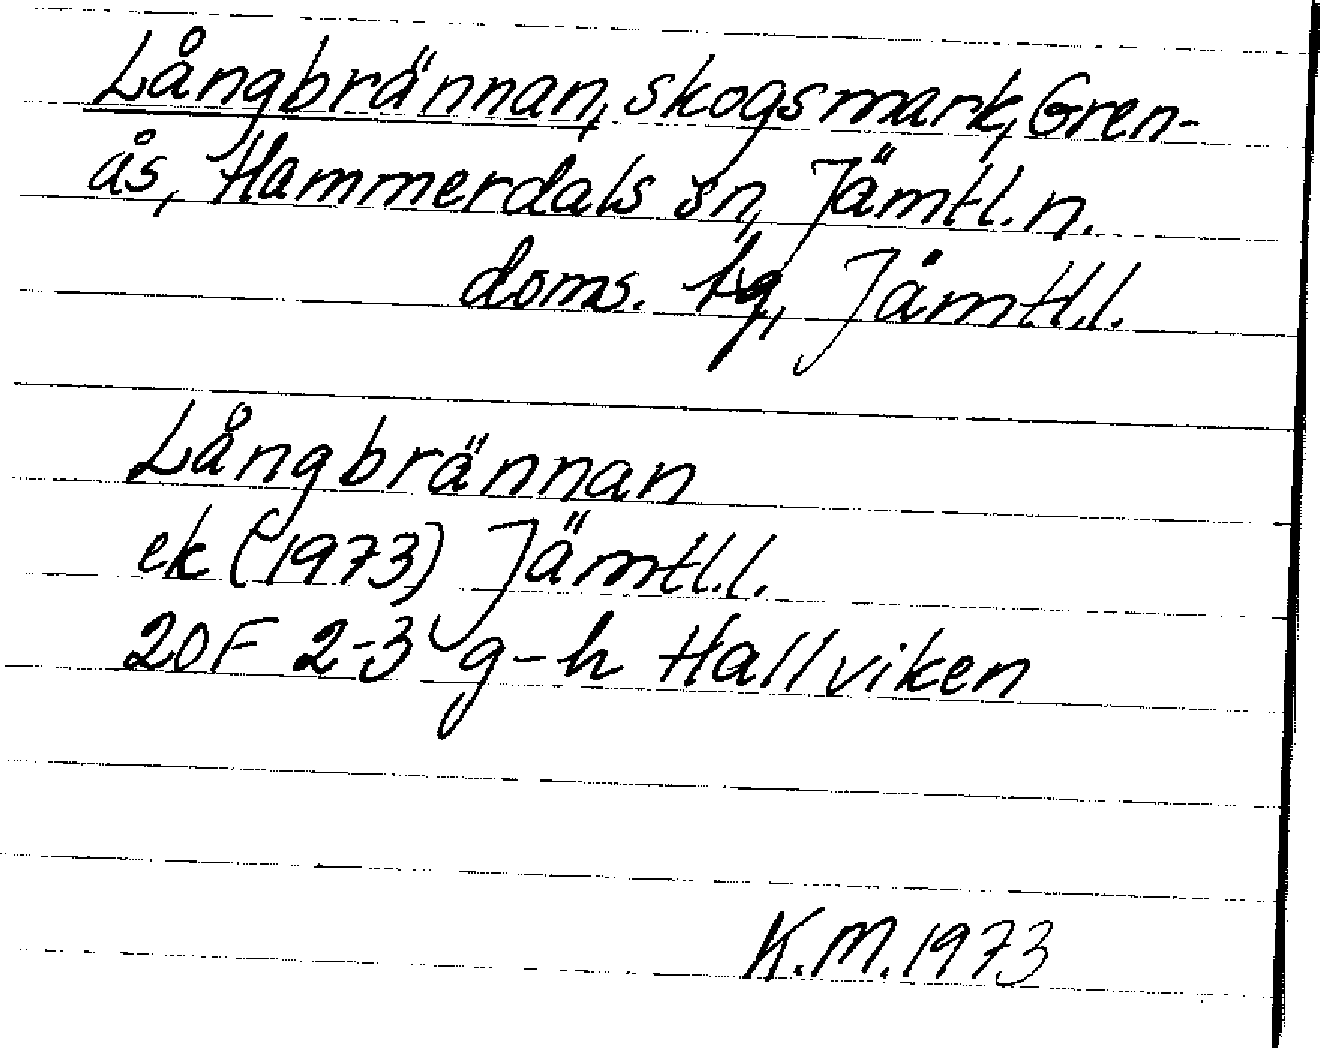 Långbrännan, skogsmark, Gren-
ås, Hammerdals sn, Jämtl. n.
doms. tg, Jämtl.l.
Långbrännan
ek (1973) Jämtl.l.
20F 2-3 g-h Hallviken
K.M. 1973